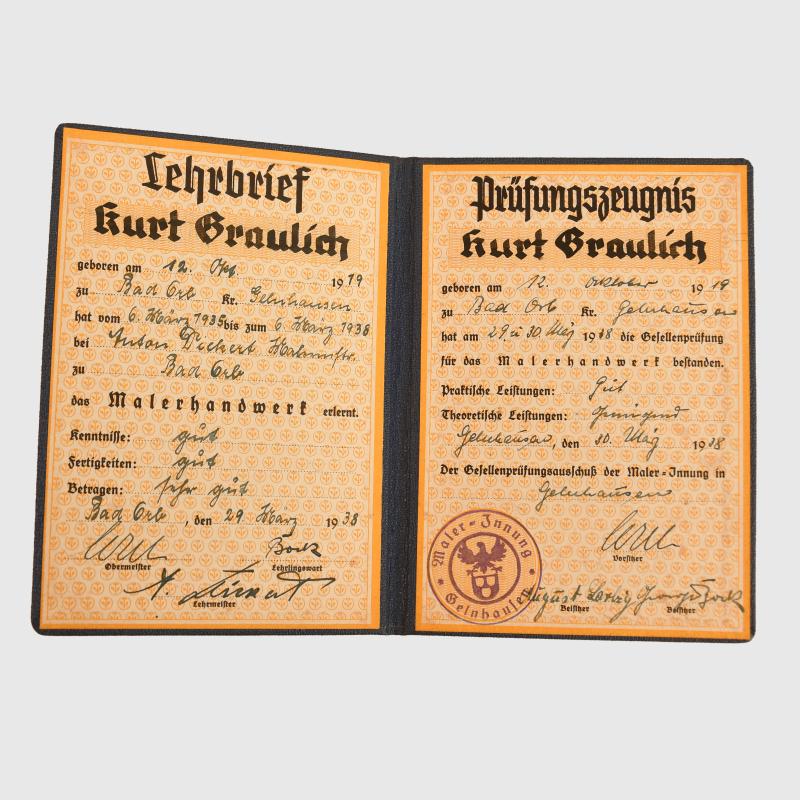 Lehrbrief
Kurt Graulich
geboren am 12. Okt. 1919
zu Bad Orb Kr. Gelnhausen
hat vom 6. März 1935 bis zum 6. März 1938
bei Anton Dickert Malermstr.
zu Bad Orb
das Malerhandwerk erlernt.
Kenntnisse: gut
Fertigkeiten: gut
Betragen: sehr gut
Bad Orb, den 29. März 1938
Bock
Obermeister Lehrlingswart
A. Dickert
Lehrmeister
Prüfungszeugnis
Kurt Graulich
geboren am 12. Oktober 1919
zu Bad Orb Kr. Gelnhausen
hat am 29 u 30. März 1938 die Gesellenprüfung
für das Malerhandwerk bestanden.
Praktische Leistungen: Gut
Theoretische Leistungen: Genügend
Gelnhausen, den 30. März 1938
Der Gesellenprüfungsausschuß der Maler-Innung in
Gelnhausen
Vorsitzer
Maler-Innung
Gelnhausen
August Bock
Beisitzer Beisitzer